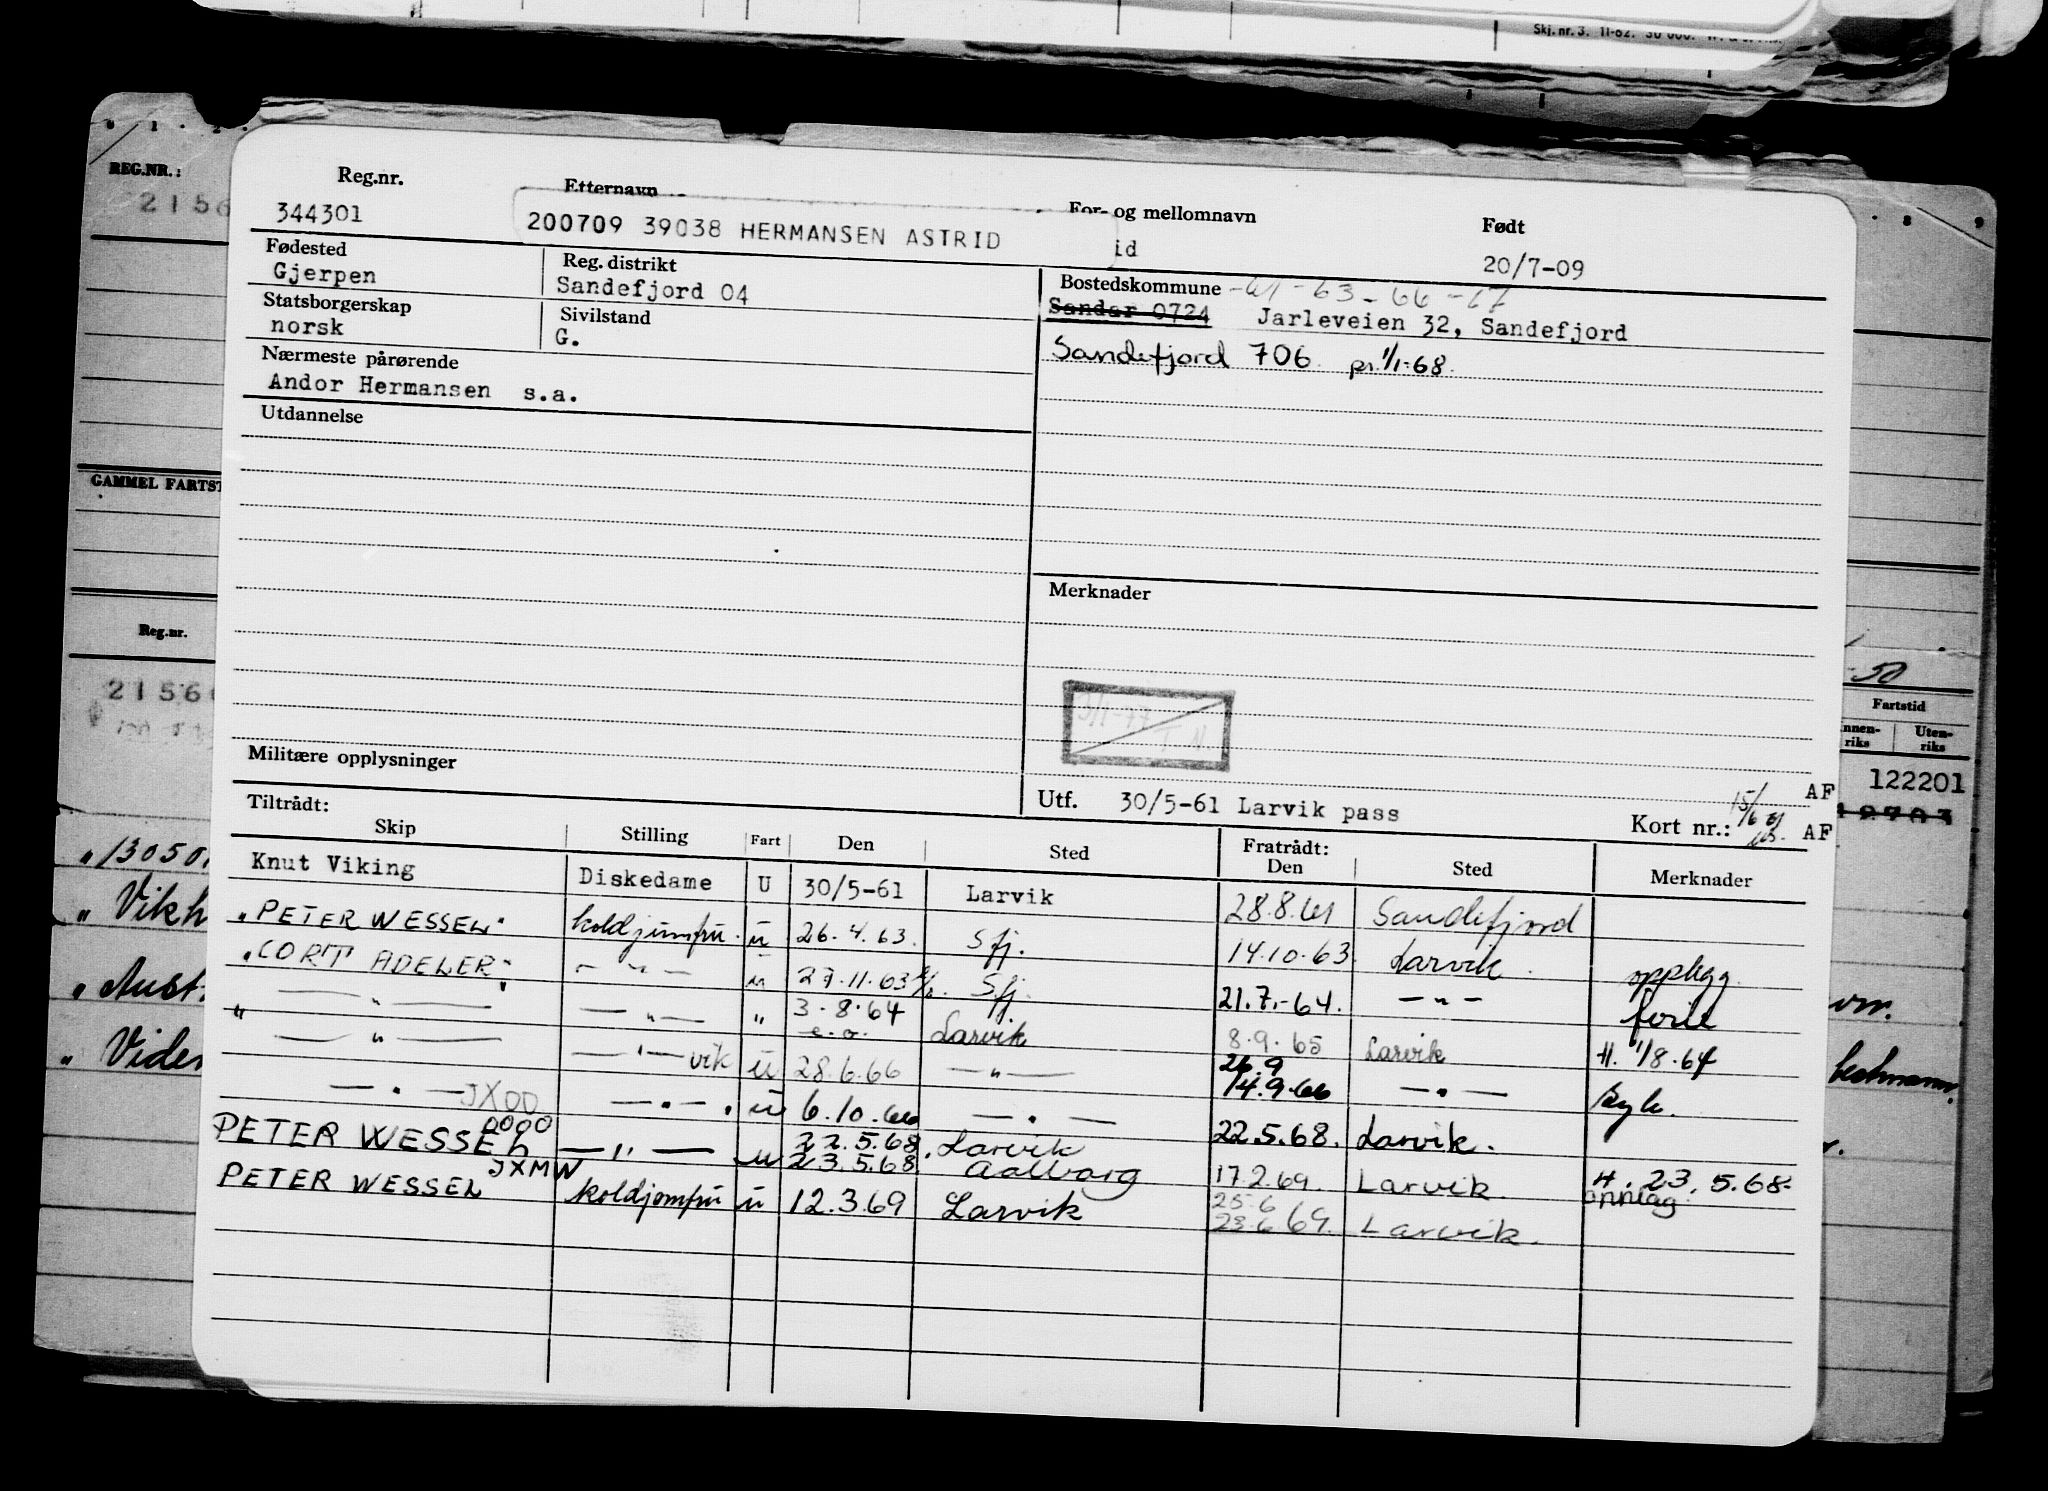 Skj. nr. 3. 11-62. 30 000.
0 1 2
8 9
REG.NR.:
2156
GAMMEL FARTST
Reg.nr.
2156
"13050.
"Vikh
"Aust.
"Viden
-50
Fartstid
nnen-
riks
Uten-
riks
122201
Reg.nr. Etternavn For- og mellomnavn Født
344301 200709 39038 HERMANSEN ASTRID id 20/7-09
Fødested Reg. distrikt Bostedskommune -61-63-66-67
Gjerpen Sandefjord 04 Sandar 0724 Jarleveien 32, Sandefjord
Statsborgerskap Sivilstand
norsk G. Sandefjord 706 pr. 1/1-68.
Nærmeste pårørende
Andor Hermansen s.a.
Utdannelse
Merknader
3/1-77
T N.
Militære opplysninger
Utf. 30/5-61 Larvik pass Kort nr.: 15/6 61 AF
AF
Tiltrådt: Fratrådt:
Skip Stilling Fart Den Sted Den Sted Merknader
Knut Viking Diskedame U 30/5-61 Larvik 28.8.61 Sandefjord
"PETER WESSEL" koldjomfru. u 26.4.63. Sfj. 14.10.63. Larvik opplegg.
"CORT ADELER" — " — u 27.11.63 Sfj. 21.7.-64. — " — ferie
" — " — — " — " 3.8.64 Larvik 8.9.65 Larvik H. 1/8.64
e.o.
— " — — " — vik u 28.6.66 — " — 26.9
14.9.66 — " — syk.
— " — JXOO — " — u 6.10.66 — " — 22.5.68. Larvik.
PETER WESSEL — " — u 22.5.68. Larvik 17.2.69. Larvik H. 23.5.68.
23.5.68 Aalborg
JXMW
PETER WESSEL koldjomfru u 12.3.69 Larvik 25.6
23.6.69. Larvik.